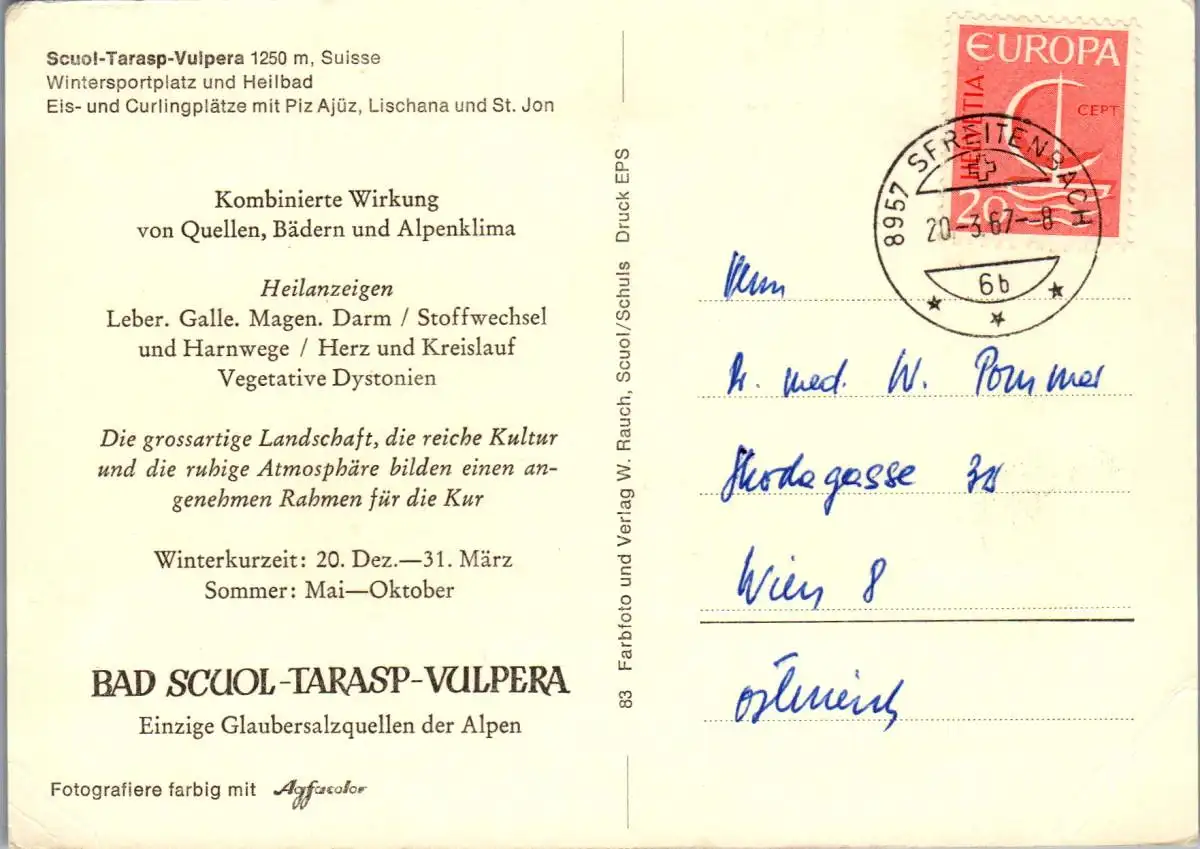 Scuol-Tarasp-Vulpera 1250 m, Suisse
Wintersportplatz und Heilbad
Eis- und Curlingplätze mit Piz Ajüz, Lischana und St. Jon
Kombinierte Wirkung
von Quellen, Bädern und Alpenklima
Heilanzeigen
Leber. Galle. Magen. Darm / Stoffwechsel
und Harnwege / Herz und Kreislauf
Vegetative Dystonien
Die grossartige Landschaft, die reiche Kultur
und die ruhige Atmosphäre bilden einen an-
genehmen Rahmen für die Kur
Winterkurzeit: 20. Dez.—31. März
Sommer: Mai—Oktober
BAD SCUOL-TARASP-VULPERA
Einzige Glaubersalzquellen der Alpen
Fotografiere farbig mit Agfacolor
83 Farbfoto und Verlag W. Rauch, Scuol/Schuls Druck EPS
EUROPA
HELVETIA
CEPT
20
8957 SPREITENBACH
20.-3.67--8
6b
Herrn
Dr. med. W. Pommer
Skodagasse
Wien 8
Österreich